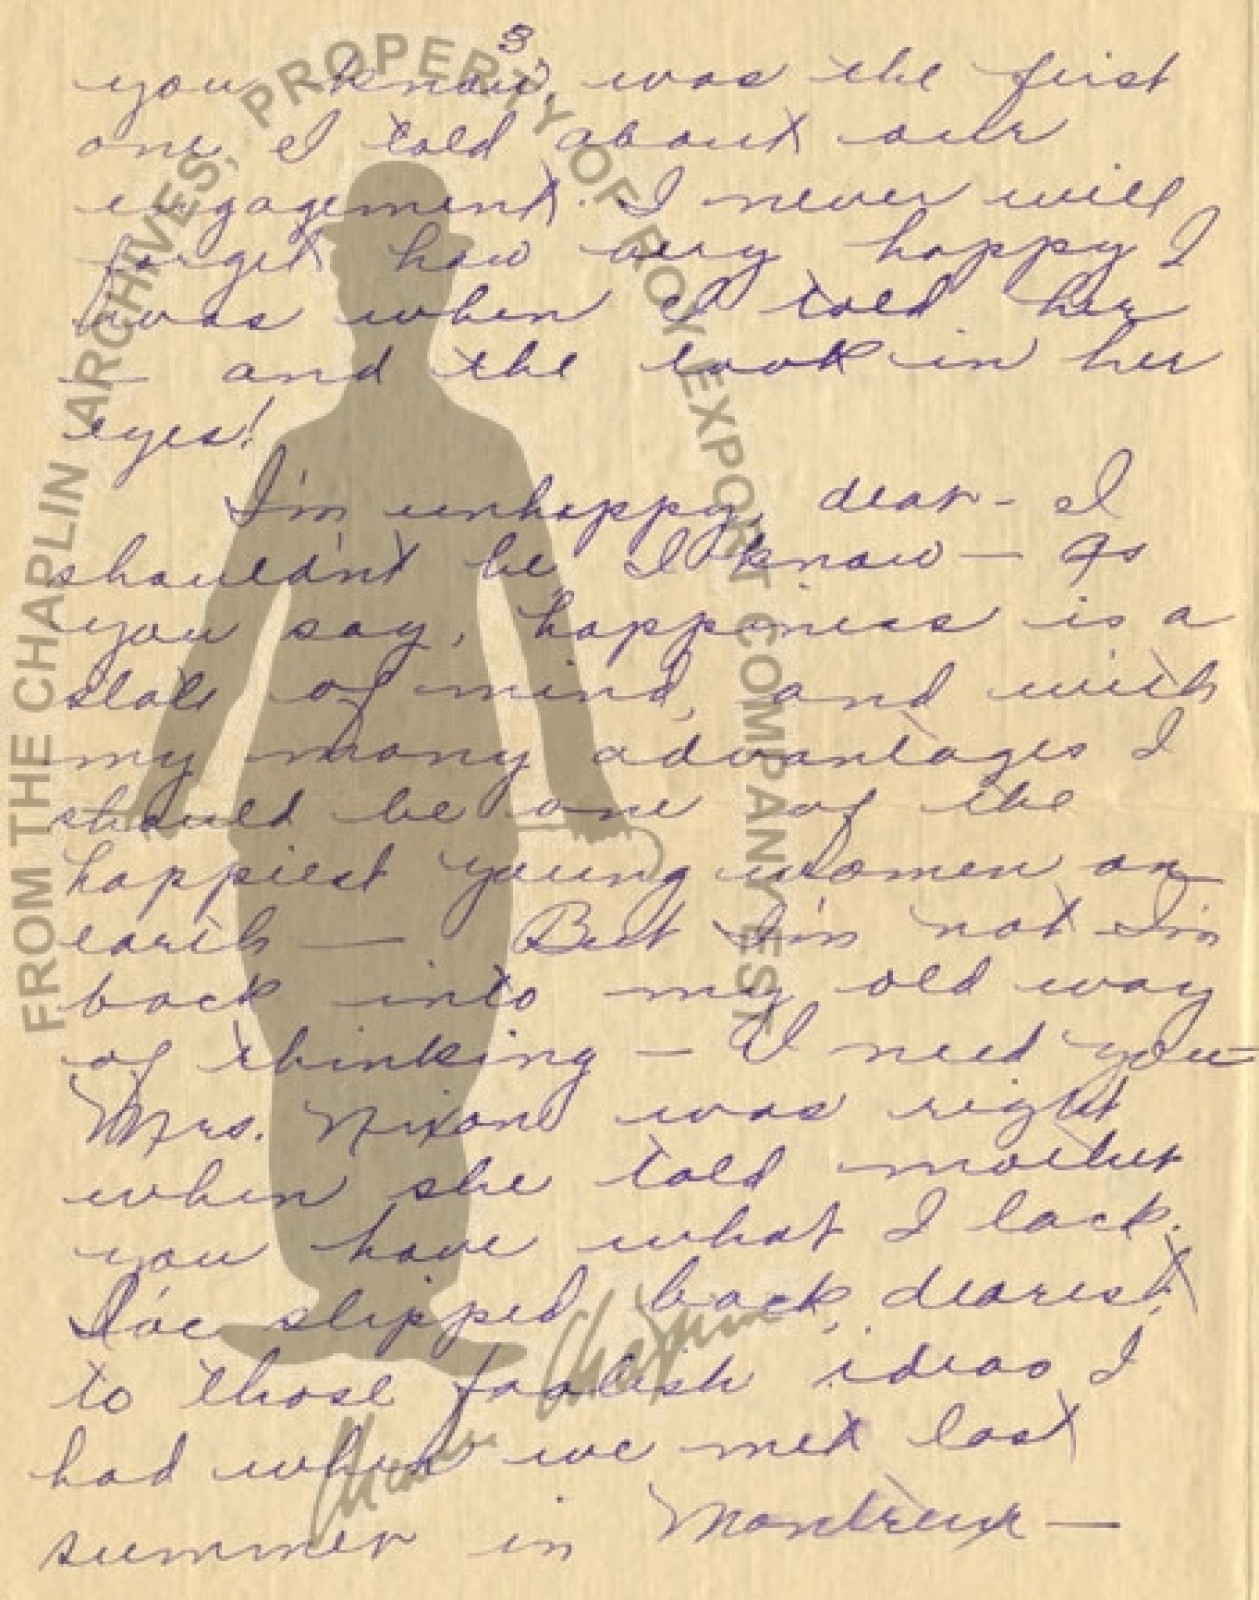 3
you know, was the first
one I told about our
engagement. I never will
forget how very happy I
was when I told her
— and the look in her
eyes!
I'm unhappy, dear - I
shouldn't be, I know — As
you say, happiness is a
state of mind, and with
my many advantages I
should be one of the
happiest young women on
earth — But I'm not I'm
back into my old way
of thinking — I need you —
Mrs. Nixon was right
when she told mother
you have what I lack.
I've slipped back, dearest,
to those foolish ideas I
had when we met last
summer in Montreux —
FROM THE CHAPLIN ARCHIVES, PROPERTY OF ROY EXPORT COMPANY EST
Charlie Chaplin